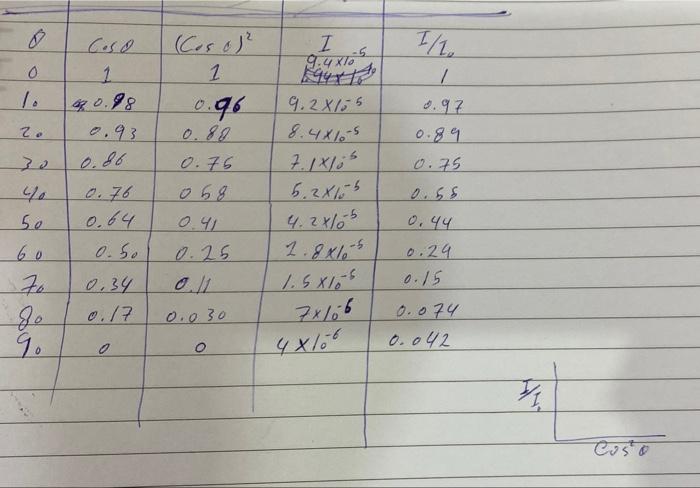 θ Cosθ (Cosθ)² I I/I₀
0 1 1 9.4×10⁻⁵ 1
10 0.98 0.96 9.2×10⁻⁵ 0.97
20 0.93 0.88 8.4×10⁻⁵ 0.89
30 0.86 0.75 7.1×10⁻⁵ 0.75
40 0.76 058 5.2×10⁻⁵ 0.55
50 0.64 0.41 4.2×10⁻⁵ 0.44
60 0.50 0.25 2.8×10⁻⁵ 0.29
70 0.34 0.11 1.5×10⁻⁵ 0.15
80 0.17 0.030 7×10⁻⁶ 0.074
90 0 0 4×10⁻⁶ 0.042
I/I₀
Cos²θ